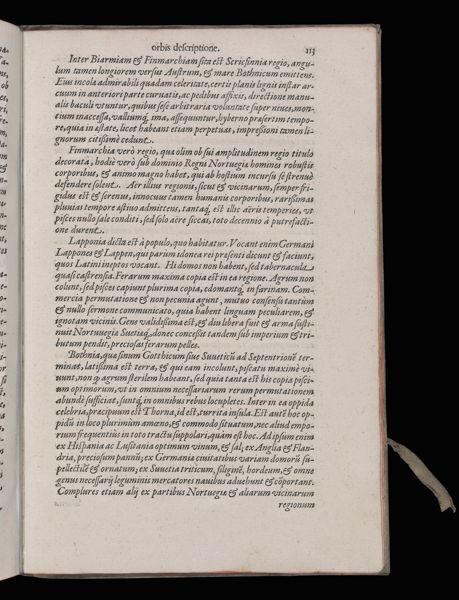 orbis descriptione. 113
Inter Biarmiam & Finmarchiam sita est Scricfinnia regio, angu-
lum tamen longiorem versus Austrum, & mare Bothnicum emittens.
Eius incolæ admirabili quadam celeritate, certis planis lignis instar ar-
cuum in anteriori parte curvatis, ac pedibus affixis, directione manu-
alis baculi vtuntur, quibus sese arbitraria voluntate super niues, mon-
tium inaccessa, valliumq́; ima, assequuntur, hyberno præsertim tempo-
re, quia in æstate, licet habeant etiam perpetuas, impressioni tamen li-
gnorum citissimè cedunt.
Finmarchia verò regio, quæ olim ob sui amplitudinem regio titulo
decorata, hodie verò sub dominio Regni Nortuegiæ homines robustis
corporibus, & animo magno habet, qui ab hostium incursu se strenuè
defendere solent. Aër illius regionis, sicut & vicinarum, semper fri-
gidus est & serenus, innocuus tamen humanis corporibus, rarissimas
pluuias tempore æstiuo admittens, tantaq́; est illic aëris temperies, vt
pisces nullo sale conditi, sed solo aëre siccati, toto decennio à putrefacti-
one durent.
Lapponia dicta est à populo, quo habitatur. Vocant enim Germani
Lappones & Lappen, qui parum idonea rei præsenti dicunt & faciunt,
quos Latini ineptos vocant. Hi domos non habent, sed tabernacula
quasi castrensia. Ferarum maxima copia est in ea regione. Agrum non
colunt, sed pisces capiunt plurima copia, cdomantq́; in farinam. Com-
mercia permutatione & non pecunia agunt, mutuo consensu tantùm
& nullo sermone communicato, quia habent linguam peculiarem, &
ignotam vicinis. Gens validissima est, & diu libera fuit & arma susti-
nuit Nortuuegiæ Suetiæq́;, donec concessit tandem sub imperium & tri-
butum pendit, preciosas ferarum pelles.
Bothnia, quæ sinum Gotthicum siue Sueuticũ ad Septentrionẽ ter-
minat, latissima est terra, & qui eam incolunt, piscatu maximè vi-
uunt, non q̀ agrum sterilem habeant, sed quia tanta est his copia pisci-
um optimorum, vt in omnium necessariarum rerum permutationem
abundè sufficiat, suntq́; in omnibus rebus locupletes. Inter in ea oppida
celebria, præcipuum est Thorna, id est, turrita insula. Est autẽ hoc op-
pidũ in loco plurimùm amœno, & commodo situatum, nec aliud empo-
rium frequentius in toto tractu suppolari, quàm est hoc. Ad ipsum enim
ex Hispania ac Lusitania optimum vinum, & sal; ex Anglia & Flan-
dria, preciosum pannũ; ex Germaniæ ciuitatibus variam domorũ su-
pellectilẽ & ornatum; ex Suuetia triticum, siliginẽ, hordeum, & omne
genus necessarij leguminis mercatores nauibus aduehunt & cõportant.
Complures etiam alij ex partibus Nortuegiæ & aliarum vicinarum
regionum